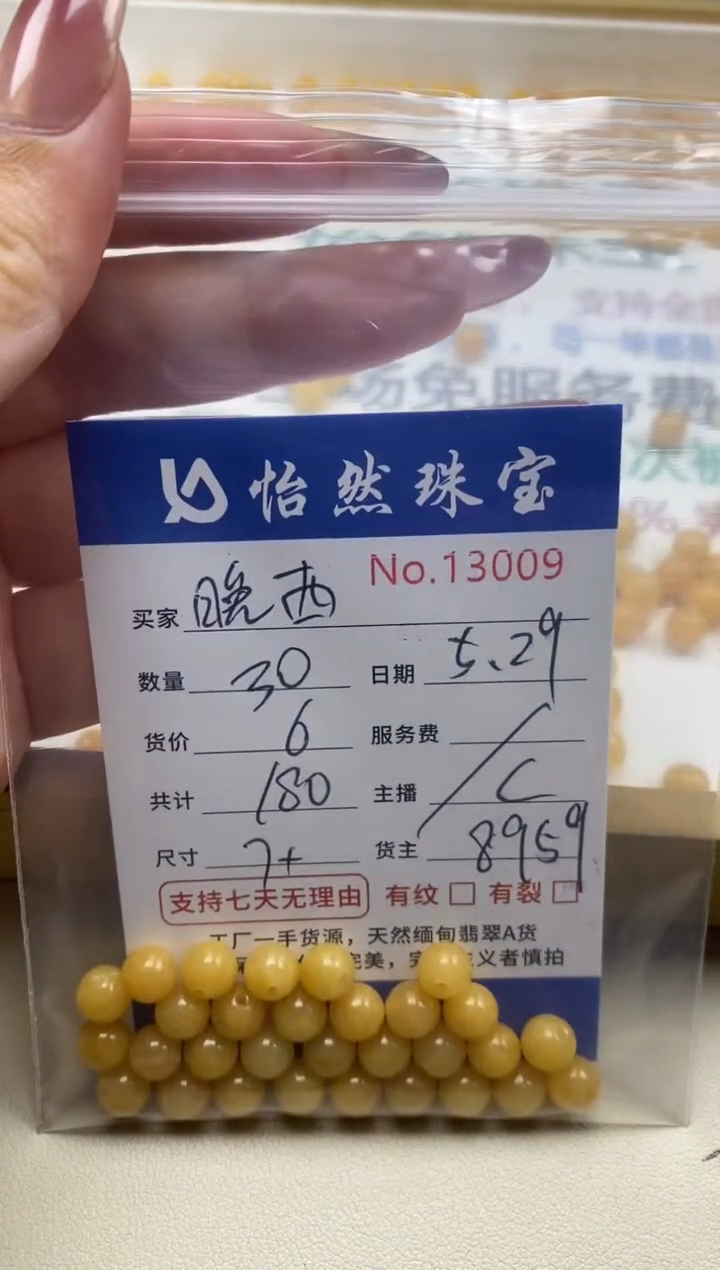 怡然珠宝
No.13009
买家 晚西
数量 30 日期 5.29
货价 6 服务费 /
共计 180 主播 C
尺寸 7+ 货主 8959
支持七天无理由 有纹 □ 有裂 □
工厂一手货源，天然缅甸翡翠A货
完美，完 主义者慎拍
支持全
场免服务费